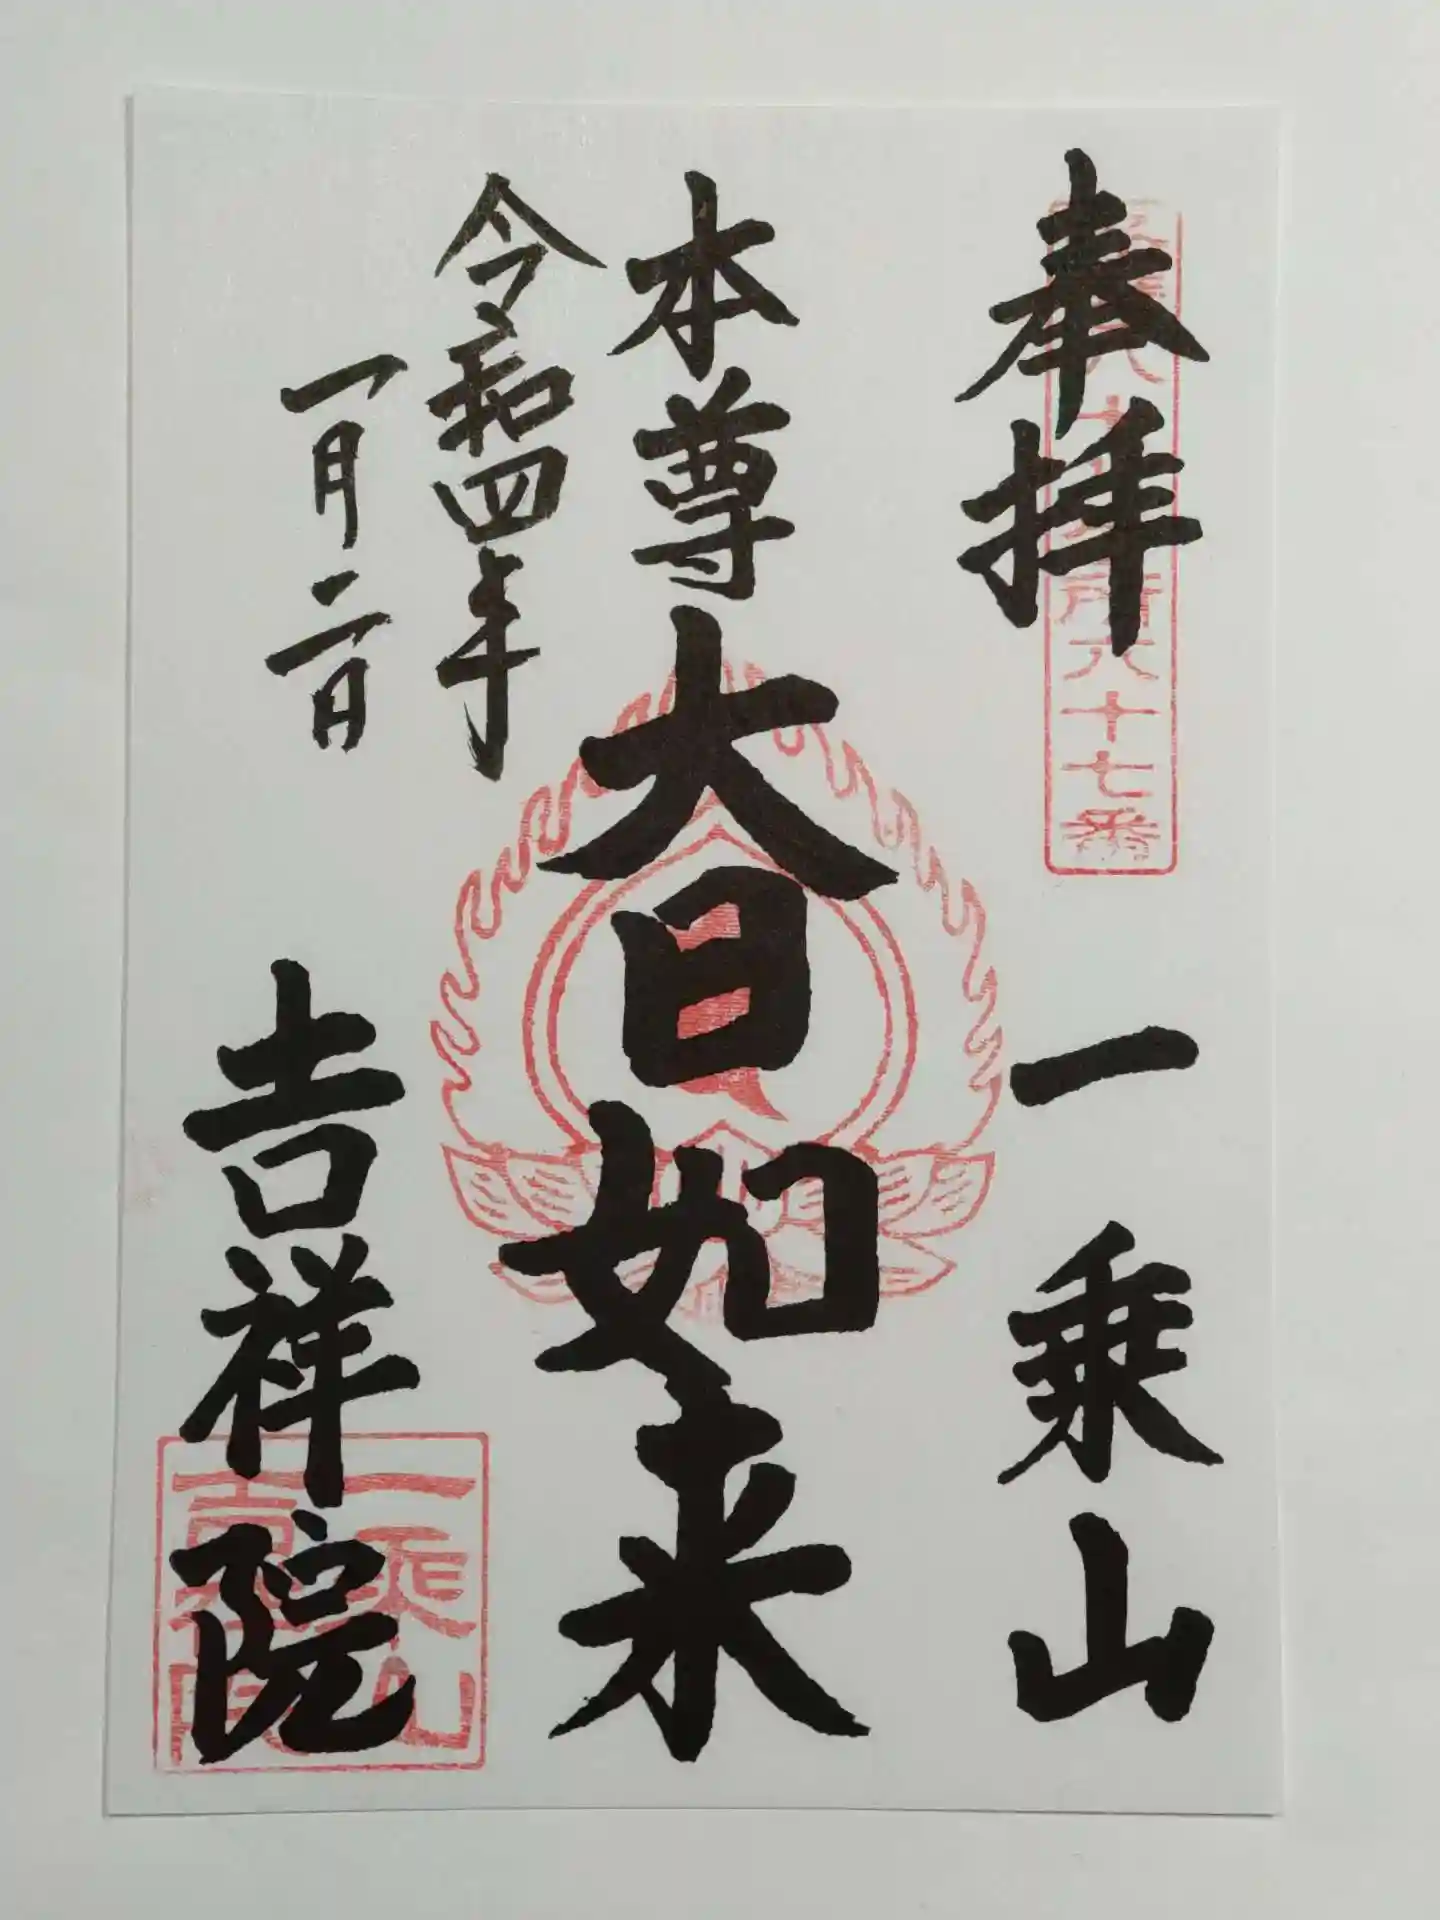 奉拝
十
所八十七番
一乗山
本尊
大日如来
令和四年
一月二日
吉祥院
一乗山
吉祥院